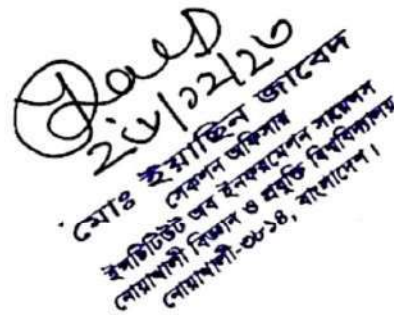 ২৮/১২/২৩
মোঃ ইয়াছিন জাবেদ
সেকশন অফিসার
ইনস্টিটিউট অব ইনফরমেশন সায়েন্সেস
নোয়াখালী বিজ্ঞান ও প্রযুক্তি বিশ্ববিদ্যালয়
নোয়াখালী-৩৮১৪, বাংলাদেশ।